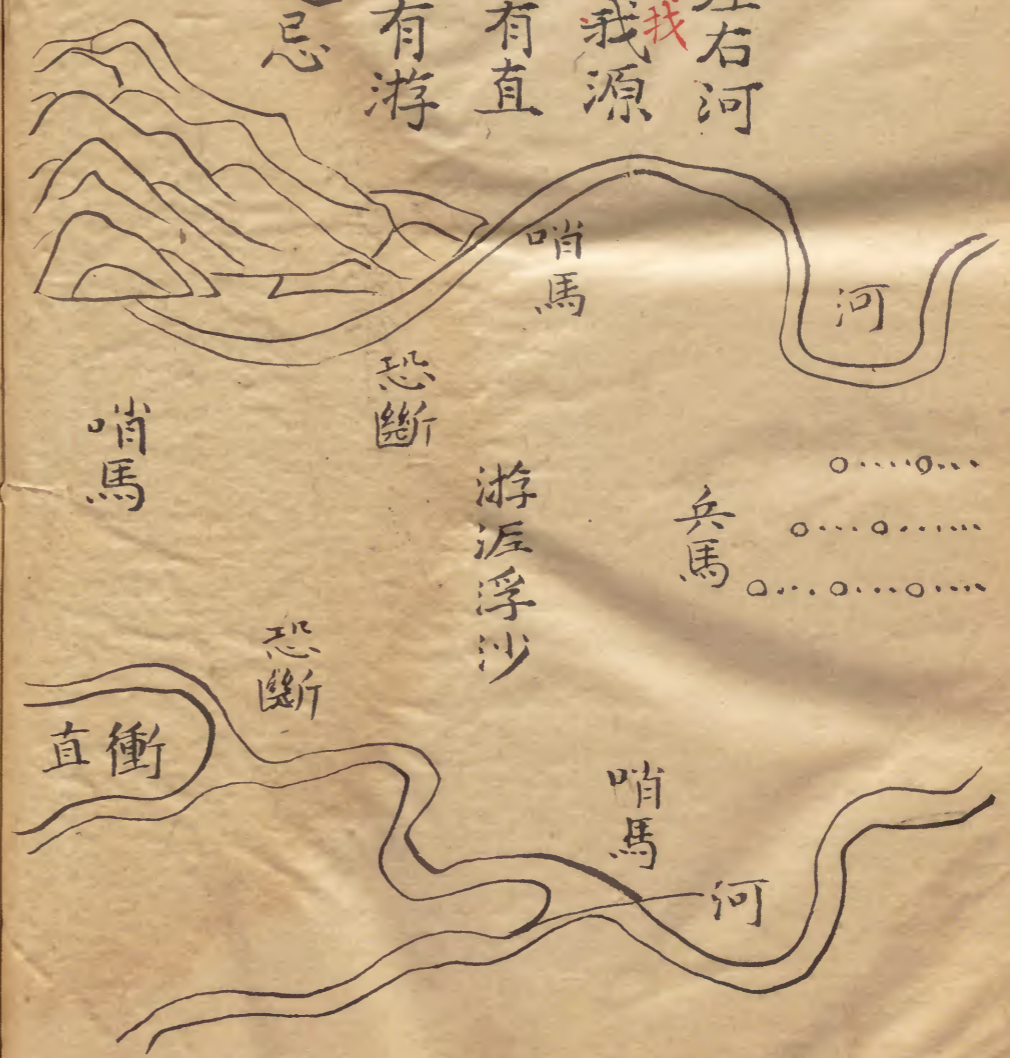 右河
我源
找
有直
有游
忌
哨馬
河
恐斷
哨馬
游涯浮沙
兵馬
恐斷
直衝
哨馬
河